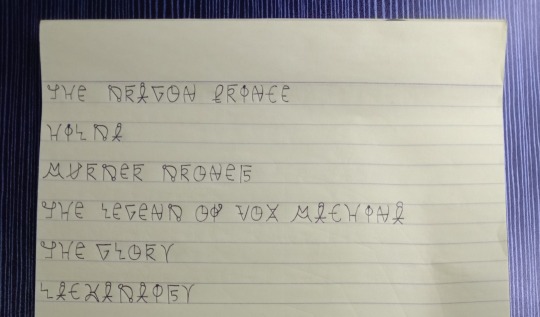 THE DRAGON PRINCE
HILDA
MURDER DRONES
THE LEGEND OF VOX MACHINA
THE GLORY
LACKADAISY